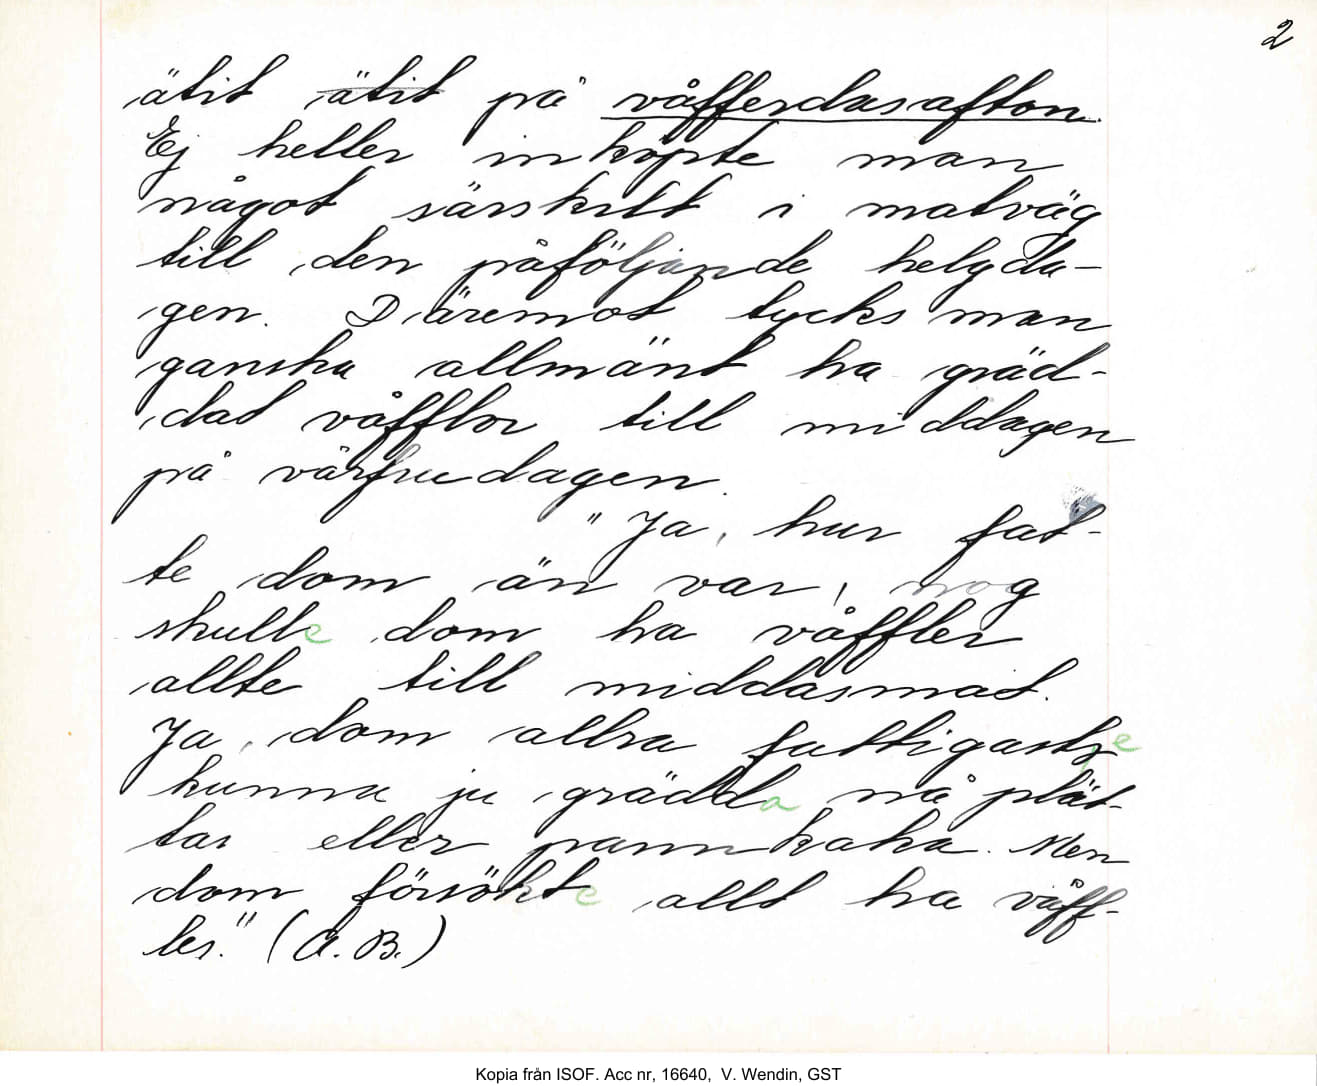 2
ätit ätit på våfferdasafton.
Ej heller inköpte man
något särskilt i matväg
till den påföljande helgda-
gen. Däremot tycks man
ganska allmänt ha gräd-
dat våfflor till middagen
på vårfrudagen.
"Ja, hur fat-
te dom än var, nog
skulle dom ha våffler
allte till middasmat.
Ja, dom allra fattigaste
kunna ju grädda nå plät-
tar eller pannkaka. Men
dom försökte allt ha våff-
ler." (A. B.)
Kopia från ISOF. Acc nr, 16640, V. Wendin, GST